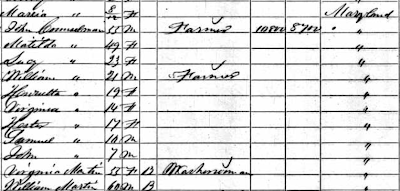 Maria " 8/12 F Maryland
John Counselman 55 M Farmer 10800 8700 "
Matilda " 49 F "
Lucy " 23 F "
William " 21 M Farmer "
Henrietta " 19 F "
Virginia " 14 F "
Hester " 17 F "
Samuel " 10 M "
John " 7 M "
Virginia Martin 55 F B Washerwoman "
William Martin 60 M B "